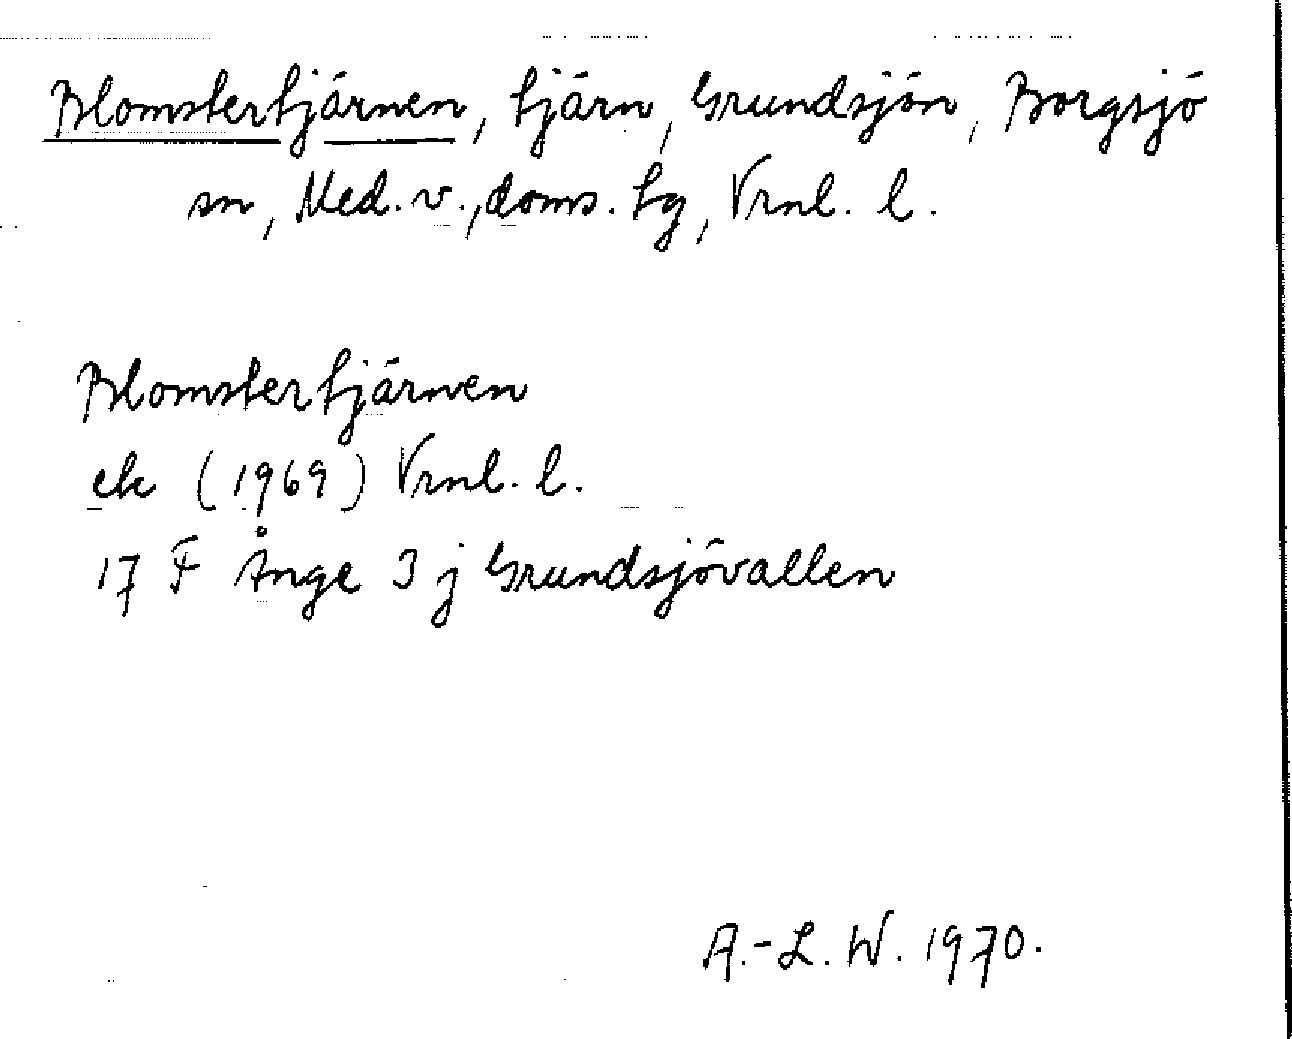 Blomstertjärnen, tjärn, Grundsjön, Borgsjö
sn, Med. v., doms. tg, Vrnl. l.
Blomstertjärnen
ek (1969) Vrnl. l.
17 F Ånge 3 j Grundsjövallen
A.-L. W. 1970.